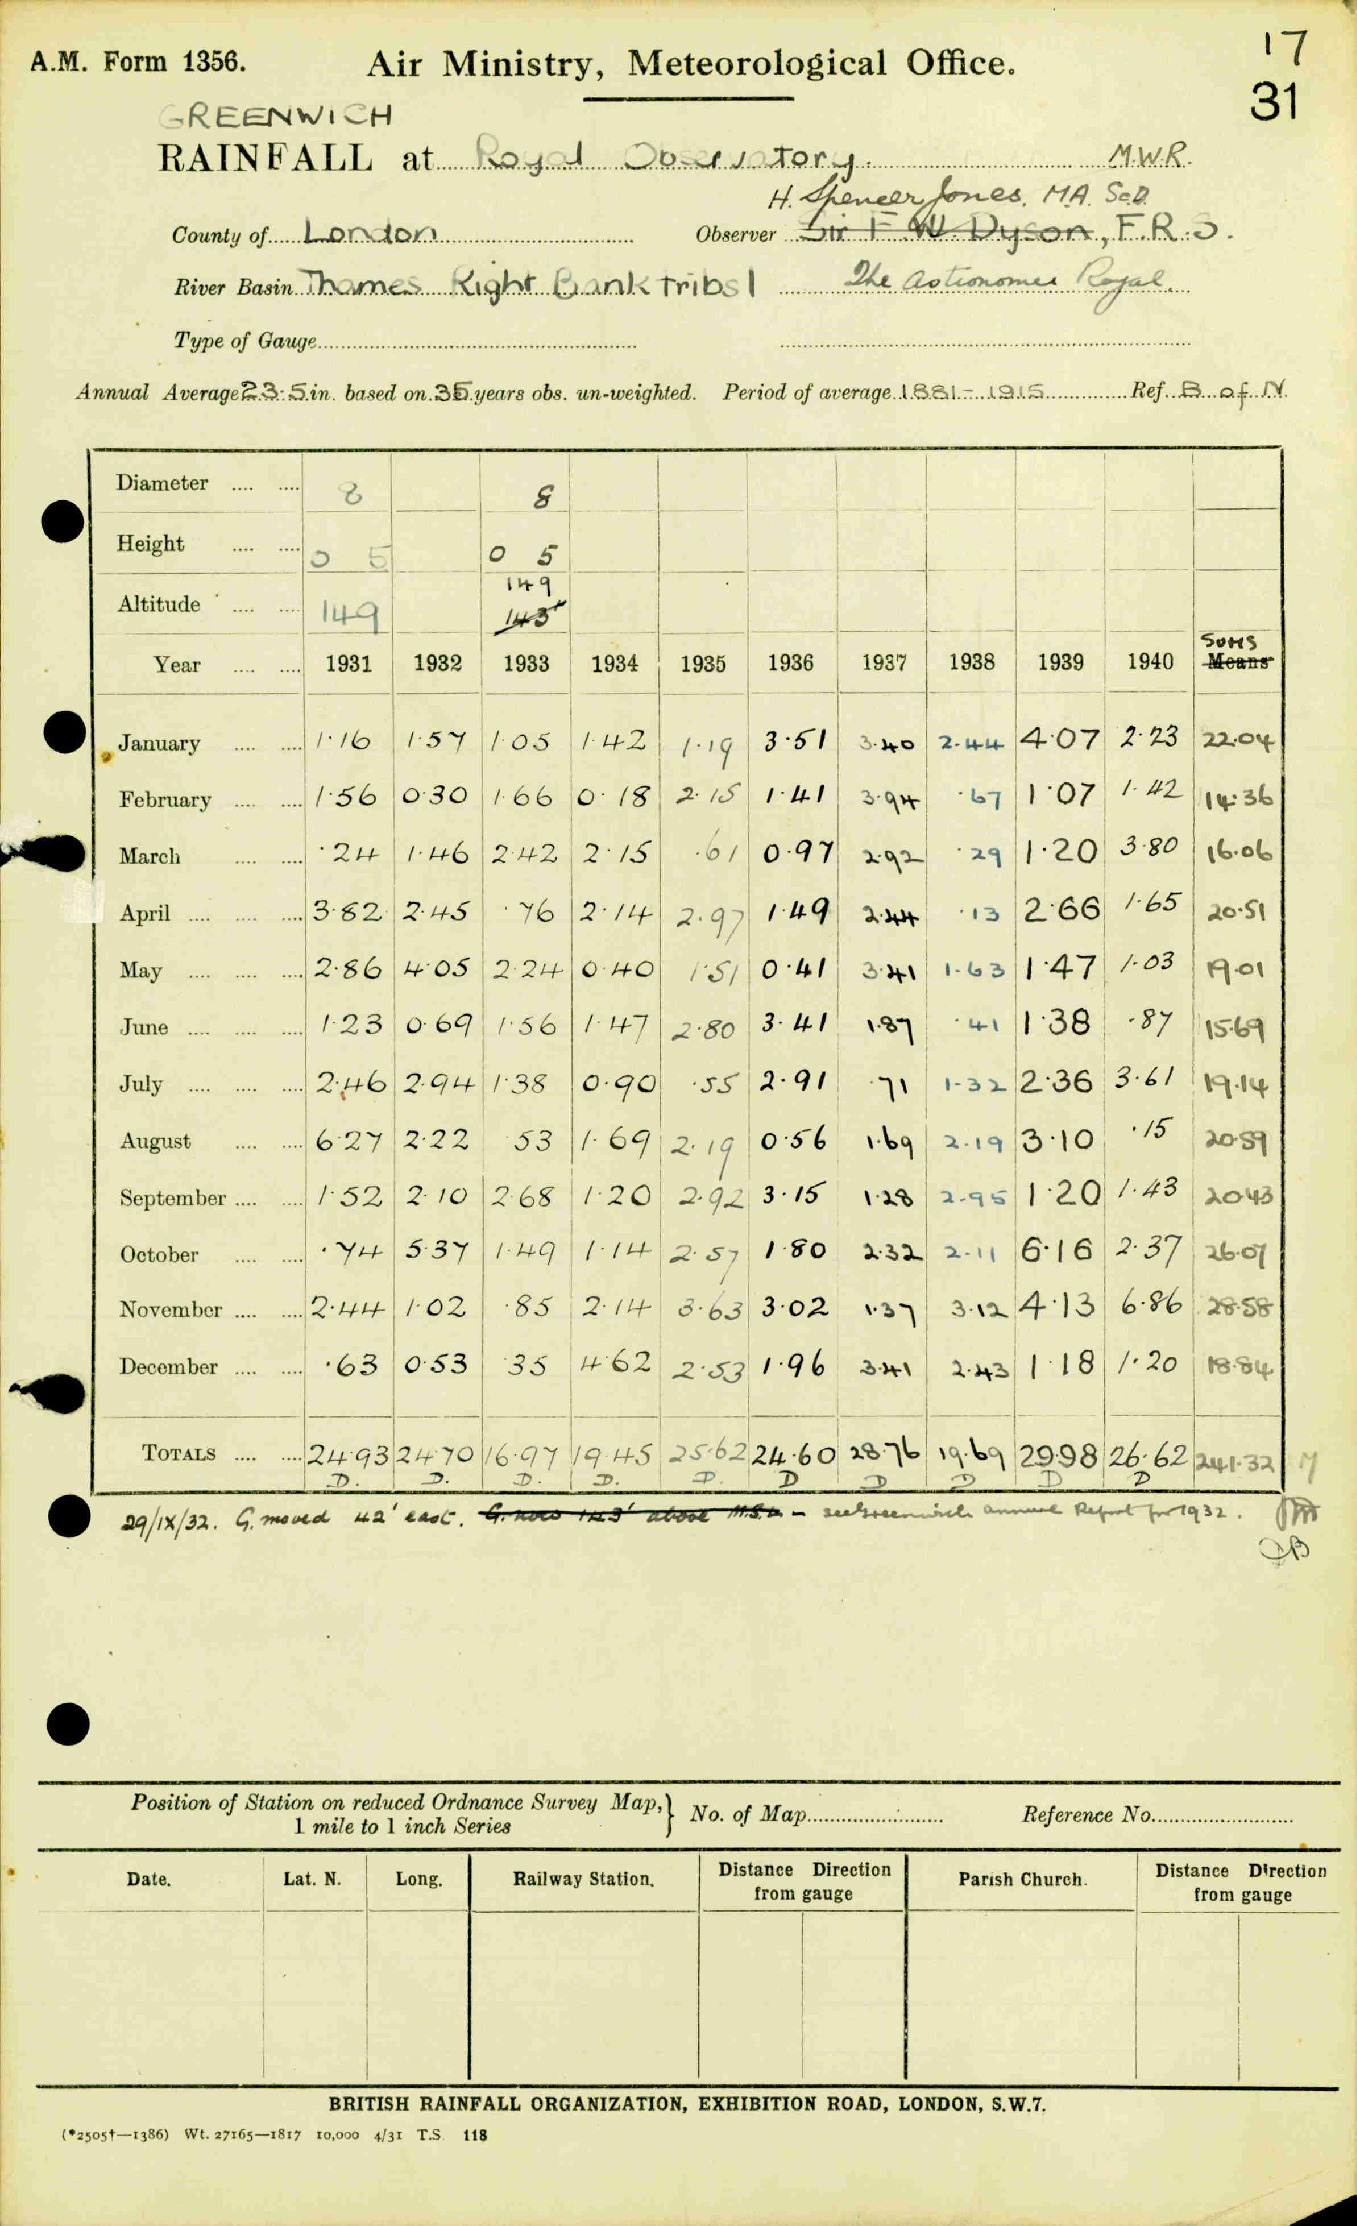 17
A.M. Form 1356. Air Ministry, Meteorological Office.
31
GREENWICH
RAINFALL at Royal Observatory. M.W.R.
H. Spencer Jones. M.A. Sc.D.
County of London Observer Sir F. W. Dyson, F.R.S.
River Basin Thames Right Bank tribs 1 The Astronomer Royal.
Type of Gauge
Annual Average 23.5 in. based on 35 years obs. un-weighted. Period of average 1881-1915 Ref. B of N
Diameter 8 8
Height 0 5 0 5
149
Altitude 149 143'
Sums
Year 1931 1932 1933 1934 1935 1936 1937 1938 1939 1940 Means
January 1.16 1.57 1.05 1.42 1.19 3.51 3.40 2.44 4.07 2.23 22.04
February 1.56 0.30 1.66 0.18 2.15 1.41 3.94 .67 1.07 1.42 14.36
March .24 1.46 2.42 2.15 .61 0.97 2.92 .29 1.20 3.80 16.06
April 3.82 2.45 .76 2.14 2.97 1.49 2.44 .13 2.66 1.65 20.51
May 2.86 4.05 2.24 0.40 1.51 0.41 3.41 1.63 1.47 1.03 19.01
June 1.23 0.69 1.56 1.47 2.80 3.41 1.87 .41 1.38 .87 15.69
July 2.46 2.94 1.38 0.90 .55 2.91 .71 1.32 2.36 3.61 19.14
August 6.27 2.22 .53 1.69 2.19 0.56 1.69 2.19 3.10 .15 20.59
September 1.52 2.10 2.68 1.20 2.92 3.15 1.28 2.95 1.20 1.43 20.43
October .74 5.37 1.49 1.14 2.57 1.80 2.32 2.11 6.16 2.37 26.07
November 2.44 1.02 .85 2.14 3.63 3.02 1.37 3.12 4.13 6.86 28.58
December .63 0.53 .35 4.62 2.53 1.96 3.41 2.43 1.18 1.20 18.84
TOTALS 24.93 24.70 16.97 19.45 25.62 24.60 28.76 19.69 29.98 26.62 241.32 M
D. D. D. D. D. D D D D D
29/IX/32. G. moved 42' east. G. now 143' above M.S.L. - see Greenwich annual Report for 1932.
Position of Station on reduced Ordnance Survey Map,
1 mile to 1 inch Series } No. of Map Reference No.
Date. Lat. N. Long. Railway Station. Distance Direction from gauge Parish Church. Distance Direction from gauge
BRITISH RAINFALL ORGANIZATION, EXHIBITION ROAD, LONDON, S.W.7.
(*2505†—1386) Wt. 27165—1817 10,000 4/31 T.S. 118